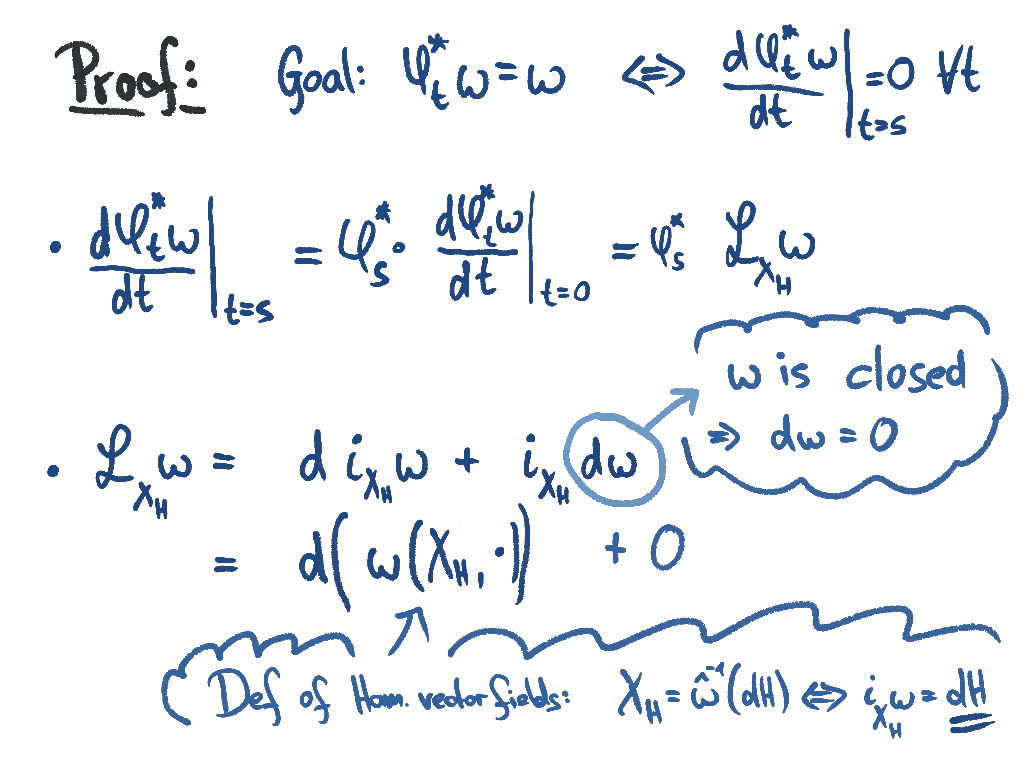 Proof: Goal: φ_t^* ω = ω ⇔ dφ_t^* ω / dt |_{t=s} = 0 ∀t
• dφ_t^* ω / dt |_{t=s} = φ_s^* · dφ_t^* ω / dt |_{t=0} = φ_s^* ℒ_{X_H} ω
ω is closed
⇒ dω = 0
• ℒ_{X_H} ω = d i_{X_H} ω + i_{X_H} dω
= d( ω(X_H, ·)) + 0
Def of Ham. vector fields: X_H = ω̂^{-1}(dH) ⇔ i_{X_H} ω = dH